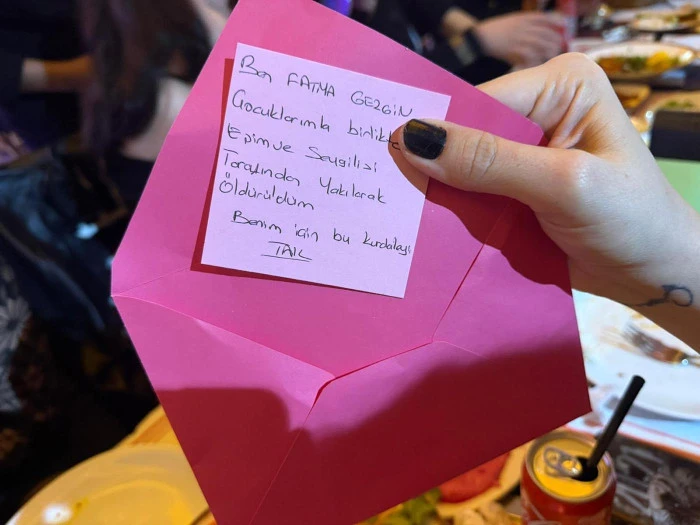 Ben FATMA GEZGİN
Çocuklarımla birlikte
Eşim ve Sevgilisi
Tarafından Yakılarak
Öldürüldüm
Benim için bu kurdaleyi
TAK